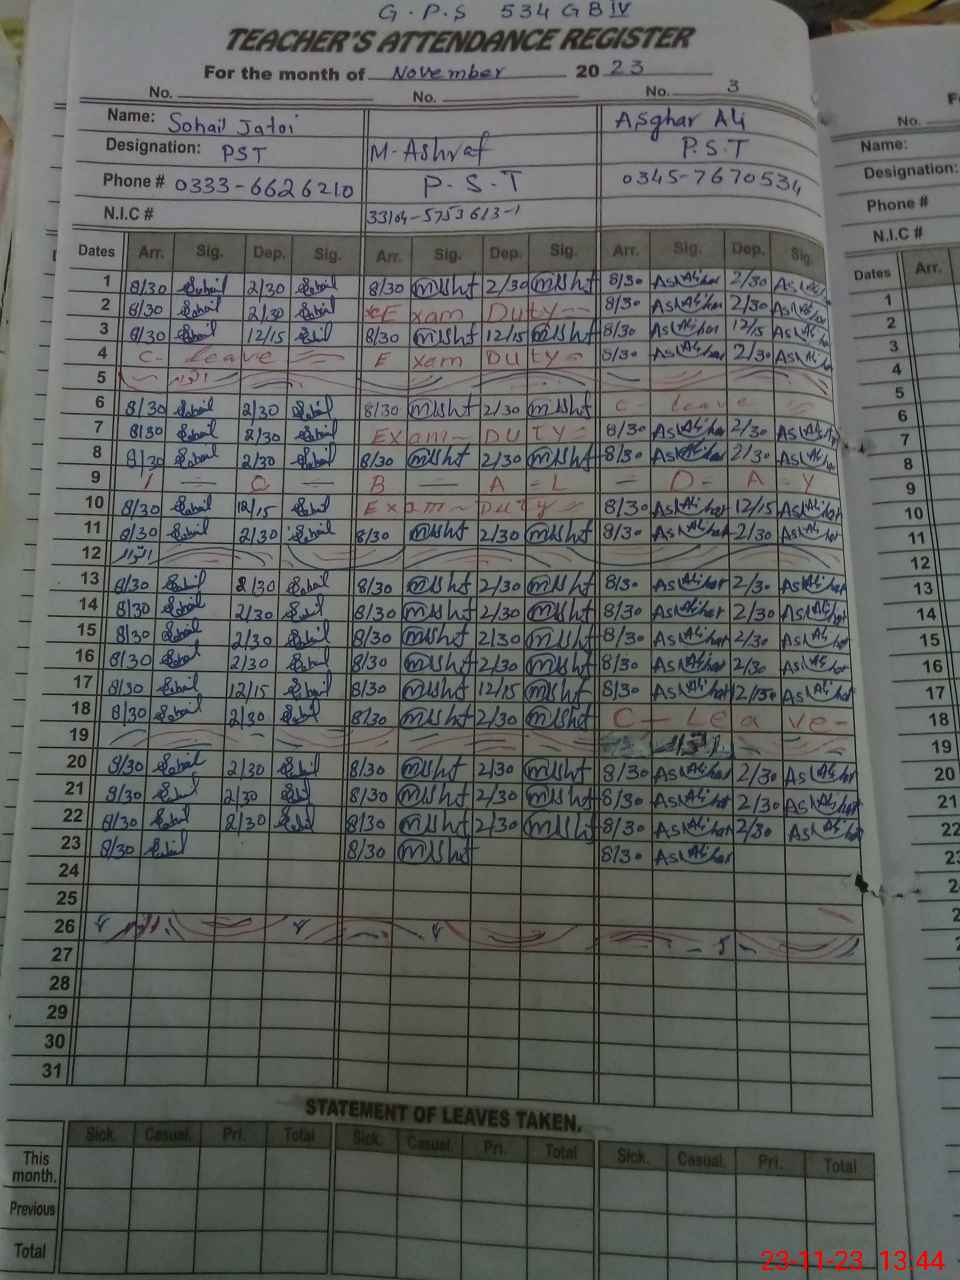 G.P.S 534 GB IV
TEACHER'S ATTENDANCE REGISTER
For the month of November 20 23
No. No. No. 3
Name: Sohail Jatoi M-Ashraf Asghar Ali
Designation: PST P.S.T P.S.T
Phone # 0333-6626210 0345-7670534
N.I.C # 33104-5753613-1
Dates Arr. Sig. Dep. Sig. Arr. Sig. Dep. Sig. Arr. Sig. Dep. Sig.
1 8/30 Sohail 2/30 Sohail 8/30 2/30 8/30 2/30
2 8/30 Sohail 2/30 Sohail Exam Duty 8/30 2/30
3 8/30 Sohail 12/15 Sohail 8/30 12/15 8/30 12/15
4 C- Leave Exam Duty 8/30 2/30
5 اتوار
6 8/30 Sohail 2/30 Sohail 8/30 2/30 C- leave
7 8/30 Sohail 2/30 Sohail Exam- DUTY 8/30 2/30
8 8/30 Sohail 2/30 Sohail 8/30 2/30 8/30 2/30
9 I - Q - B - A - L - D - A - Y
10 8/30 Sohail 12/15 Sohail Exam- DUTY 8/30 12/15
11 8/30 Sohail 2/30 Sohail 8/30 2/30 8/30 2/30
12 اتوار
13 8/30 Sohail 2/30 Sohail 8/30 2/30 8/30 2/30
14 8/30 Sohail 2/30 Sohail 8/30 2/30 8/30 2/30
15 8/30 Sohail 2/30 Sohail 8/30 2/30 8/30 2/30
16 8/30 Sohail 2/30 Sohail 8/30 2/30 8/30 2/30
17 8/30 Sohail 12/15 Sohail 8/30 12/15 8/30
18 8/30 Sohail 2/30 Sohail 8/30 2/30 C- Leave-
19
20 8/30 Sohail 2/30 Sohail 8/30 2/30 8/30 2/30
21 8/30 Sohail 2/30 Sohail 8/30 2/30 8/30 2/30
22 8/30 Sohail 2/30 Sohail 8/30 2/30 8/30 2/30
23 8/30 Sohail 8/30 8/30
24
25
26
27
28
29
30
31
STATEMENT OF LEAVES TAKEN.
Sick. Casual. Pri. Total Sick. Casual. Pri. Total Sick. Casual. Pri. Total
This month.
Previous
Total
No.
Name:
Designation:
Phone #
N.I.C #
Dates Arr.
1
2
3
4
5
6
7
8
9
10
11
12
13
14
15
16
17
18
19
20
21
22
23-11-23 13.44